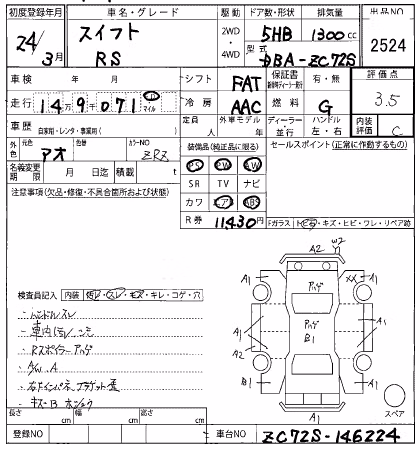 初度登録年月 車名・グレード 駆動 ドア数・形状 排気量 出品NO
24/3月 スイフト RS 2WD・4WD 5HB 1300cc 2524
型式 DBA-ZC72S
車検 年 月 シフト FAT 保証書 有・無 評価点
走行 14万9071 マイル 冷房 AAC 燃料 G 3.5
車歴 自家用・レンタ・事業用( ) 定員 人 外車モデル 年 ディーラー・並行 ハンドル 左・右 内装評価 C
外色 元色 アオ 色替 カラーNO ZRZ 装備品(純正品に限る) セールスポイント(正常に作動するもの)
名義変更期限 月 日迄 積載 t PS PW AW
SR TV ナビ
注意事項(欠品・修復・不具合箇所および状態) カワ エアB ABS
R券 11430円 Fガラス トビ石・キズ・ヒビ・ワレ・リペア跡
A2 W2
A1 XX A1
検査員記入 内装 汚レ・スレ・キズ・キレ・コゲ・穴
・ハンドルスレ
・車内汚レ
・Rスポイラー アハゲ
・A/W A
アハゲ
アハゲ
B1
A1 A2 A1
B1 A1
A1
スペア
長さ cm 幅 cm 高さ cm
登録NO 車台NO ZC72S-146224